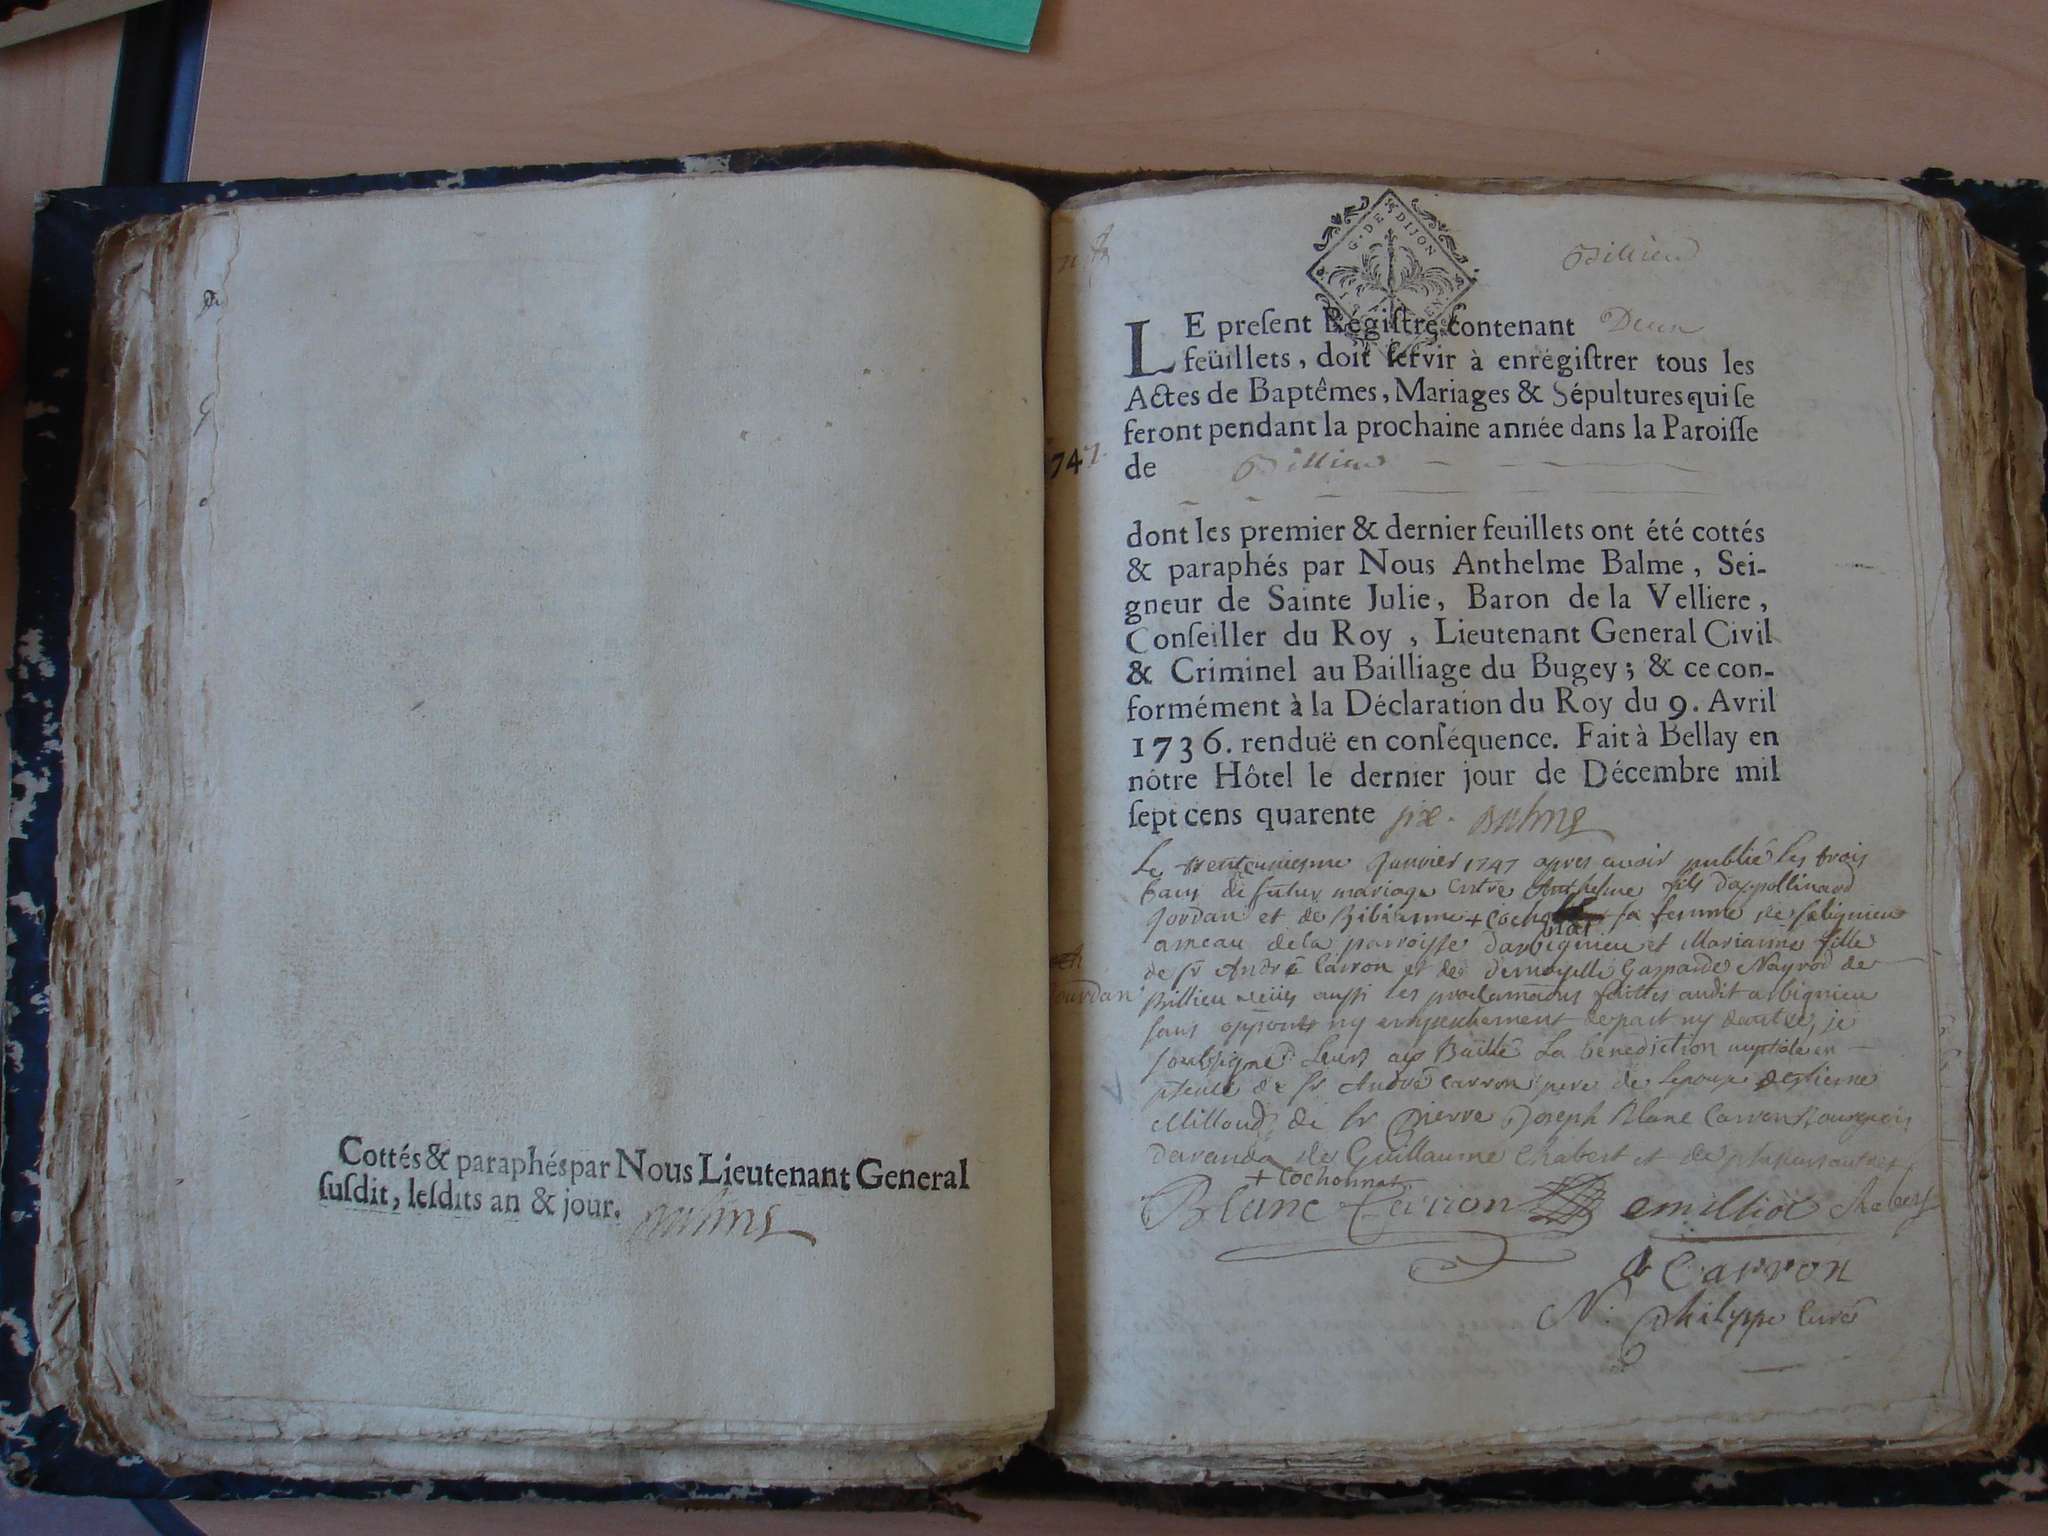 Cottés & paraphés par Nous Lieutenant General
susdit, lesdits an & jour. Balme
G. DE DIJON
Billieu
LE present Régistre contenant Deux
feüillets, doit servir à enrégistrer tous les
Actes de Baptêmes, Mariages & Sépultures qui se
feront pendant la prochaine année dans la Paroisse
de Billieu
1747.
dont les premier & dernier feuillets ont été cottés
& paraphés par Nous Anthelme Balme, Sei-
gneur de Sainte Julie, Baron de la Velliere,
Conseiller du Roy, Lieutenant General Civil
& Criminel au Bailliage du Bugey; & ce con-
formément à la Déclaration du Roy du 9. Avril
1736. renduë en conséquence. Fait à Bellay en
nôtre Hôtel le dernier jour de Décembre mil
sept cens quarente six. Balme
Le trenteunieme Janvier 1747 apres avoir publié les trois
bans de futur mariage entre Anthelme fils dappollinard
Jordan et de Bibianne + Coch nat sa femme de
ameau de la parroisse darbignieu et Marianne fille
de sr André Carron et de demoyselle Gasparde Nayrod de
Jourdan
Billieu veües aussi les proclamaōns faittes audit arbignieu
sans opposōn ny empeschement de part ny dautre, je
soubsigné leurs ay Baillé La benediction nuptiale en
pñce de sr André Carron pere de lepouse destienne
Milloud, de sr Pierre Joseph Blanc Carron Bourgeois
de Guillaume Chabert et de plusieurs autres
+ Cochonnat
Blanc Carron emilliod Chabert
A Carron
N. Philyppe Curé